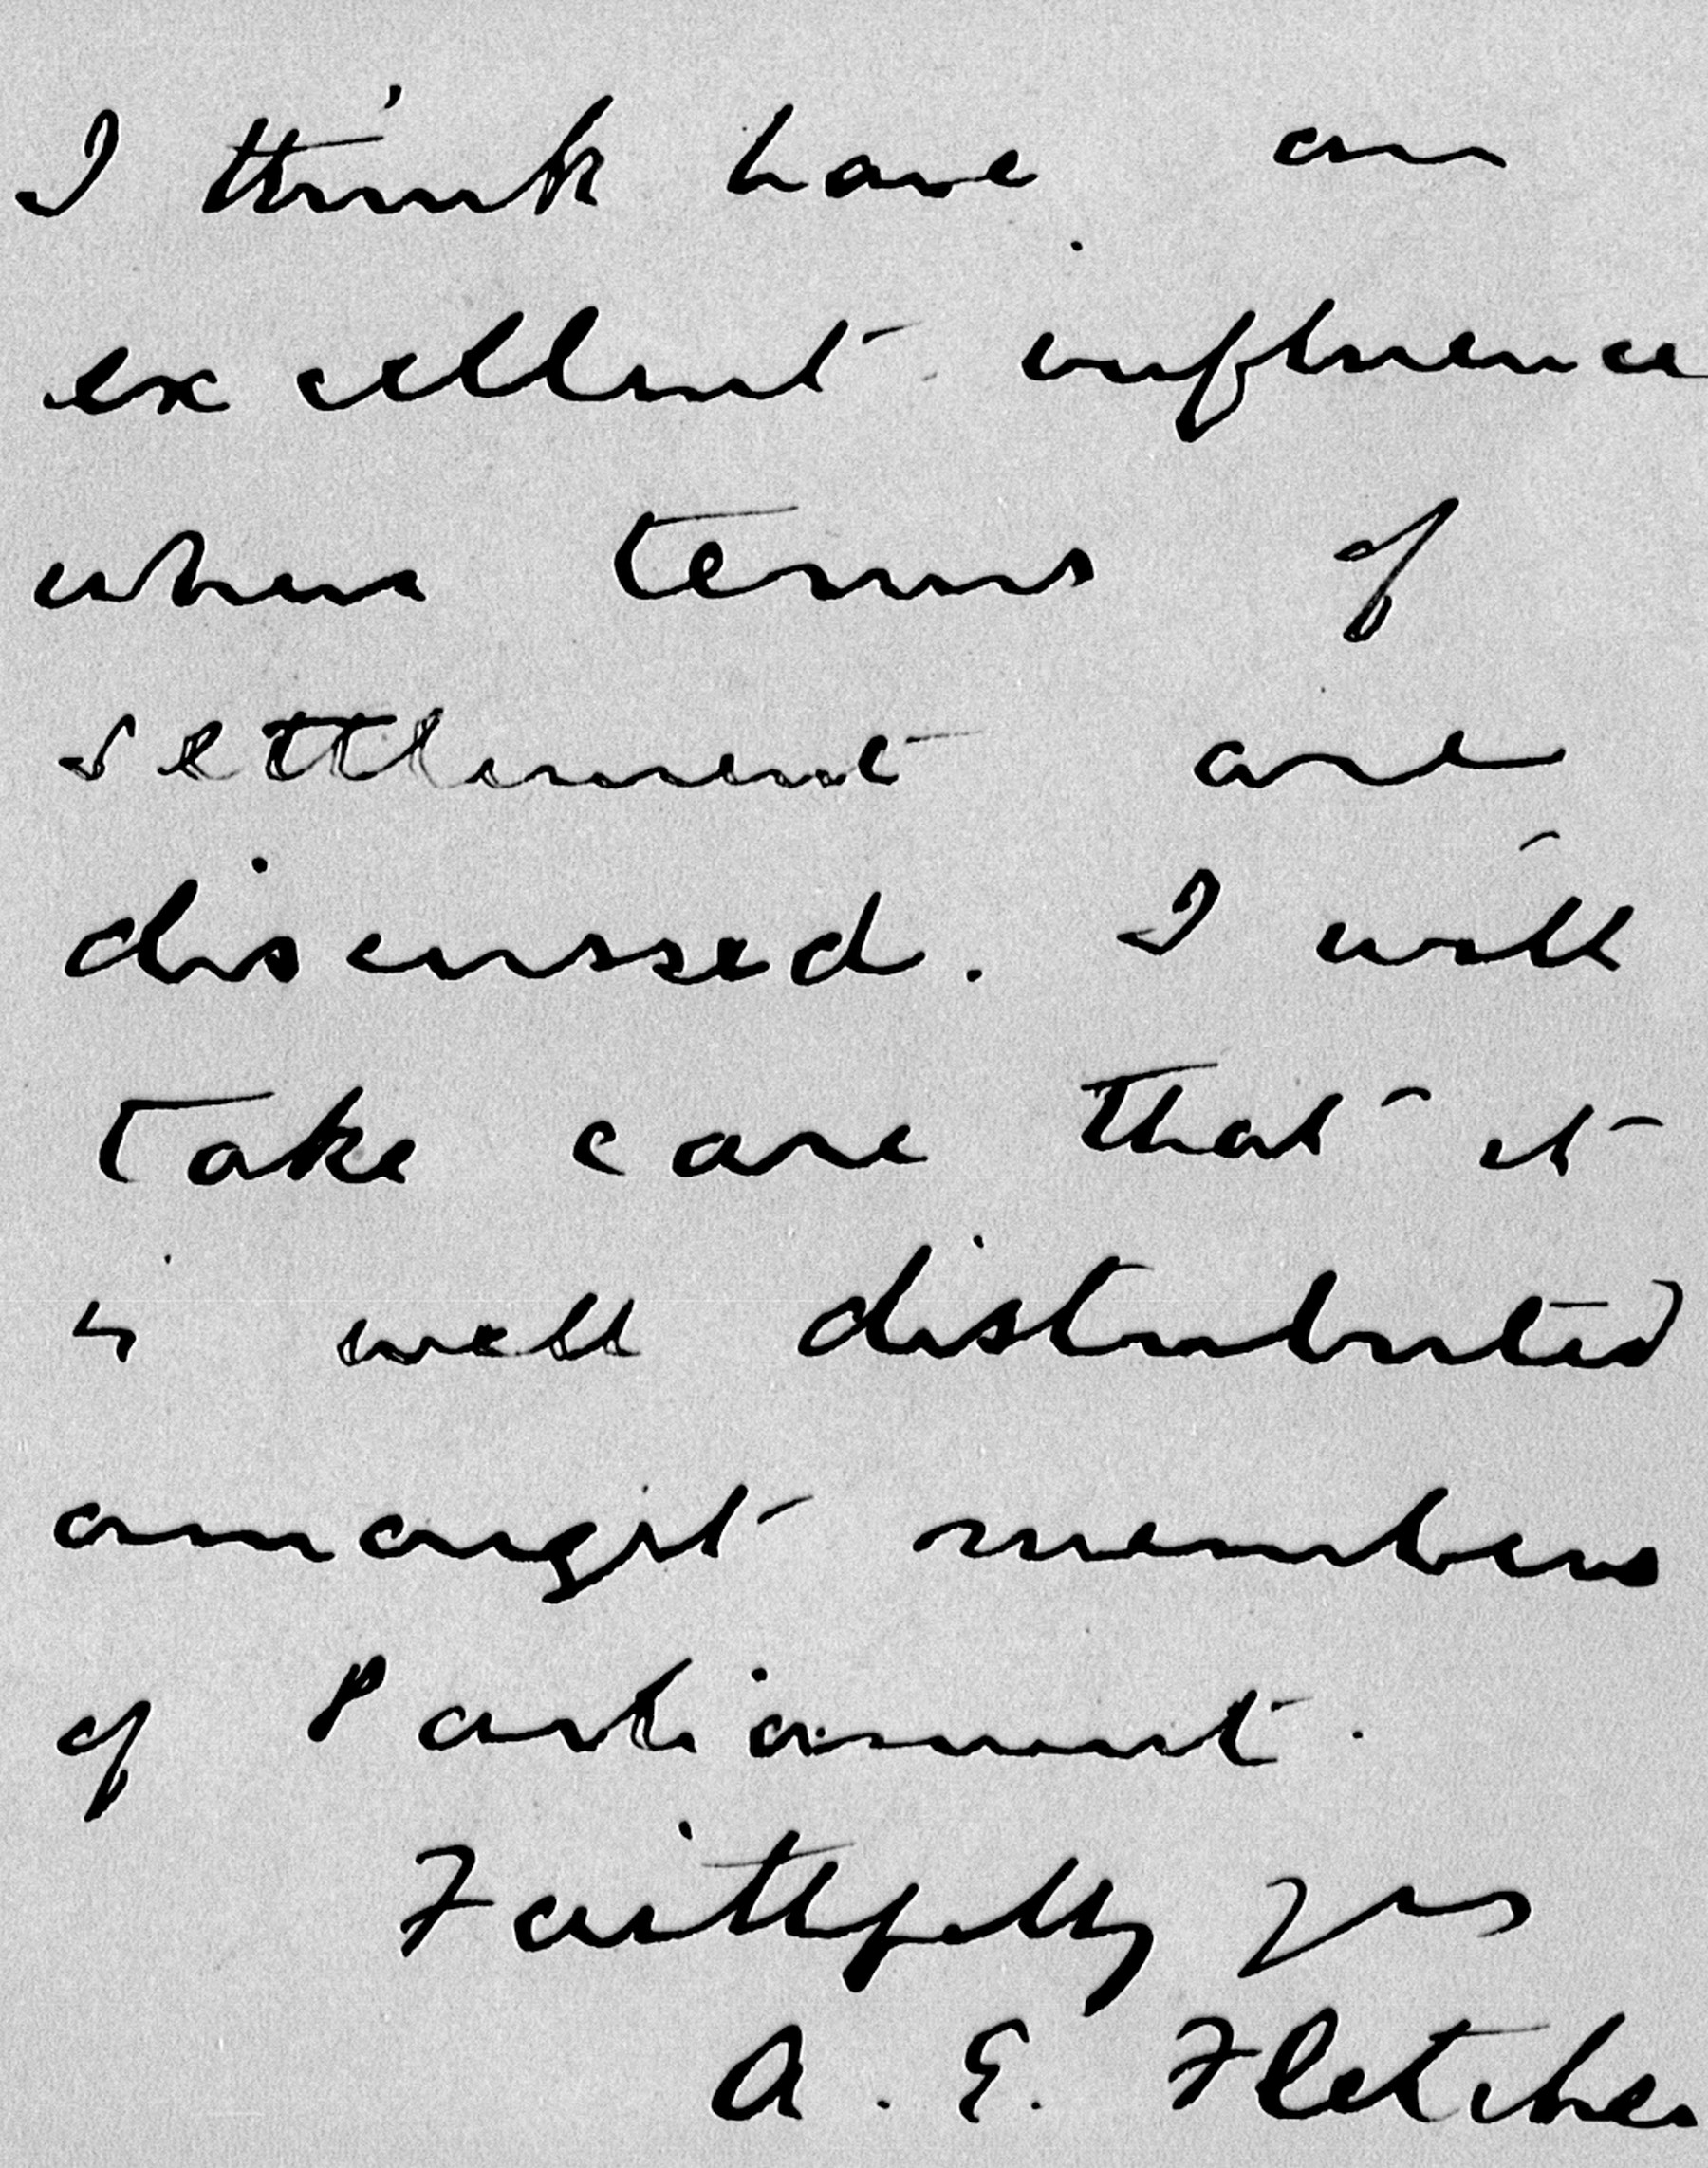 I think have an
excellent influence
when terms of
settlement are
discussed. I will
take care that it
is well distributed
amongst members
of Parliament.
Faithfully yrs
A. E. Fletcher